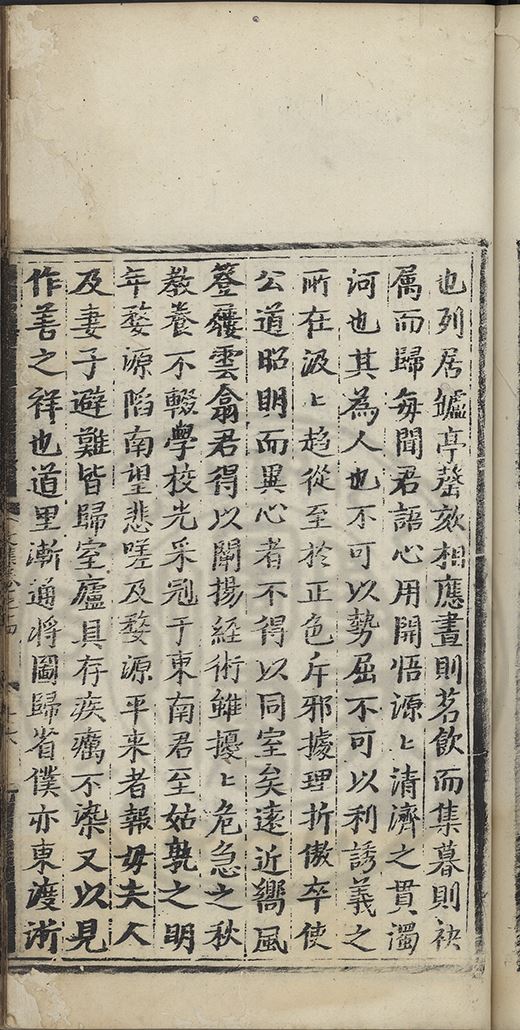 也列居鑪亭罄欬相應晝則茗飲而集暮則袂
属而歸每聞君語心用開悟源〻清濟之貫濁
河也其為人也不可以勢屈不可以利誘義之
所在汲〻趋從至於正色斥邪據理折傲卒使
公道昭明而異心者不得以同室矣遠近嚮風
簦屩雲翕君得以闡揚経術雖擾〻危急之秋
教養不輟學校光采冠于東南君至姑孰之明
年婺源陷南望悲嗟及婺源平来者報毋夫人
及妻子避難皆歸室廬具存疾癘不染又以見
作善之祥也道里漸通将圖歸省僕亦東渡浙